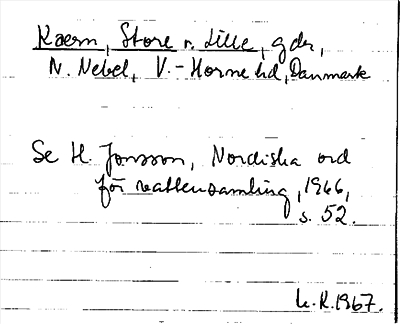 Kaern, Store o. Lille, gdr,
N. Nebel, V.-Horne hd, Danmark
Se H. Jonsson, Nordiska ord
för vattensamling, 1966,
s. 52.
L.R. 1967.